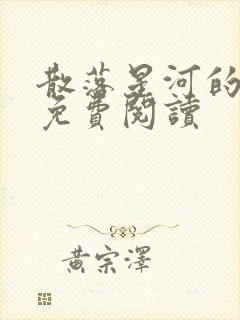 散落星河的
免費閱讀
黃宗澤